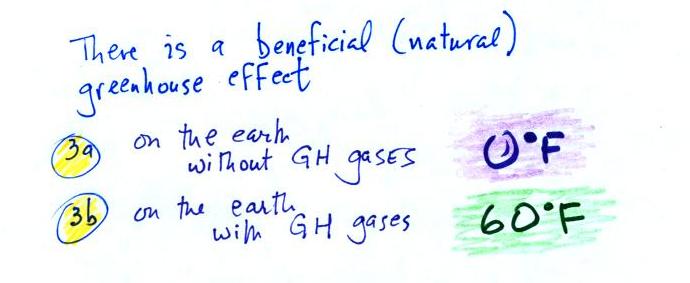 There is a beneficial (natural)
greenhouse effect
3a on the earth
without GH gases 0°F
3b on the earth
with GH gases 60°F